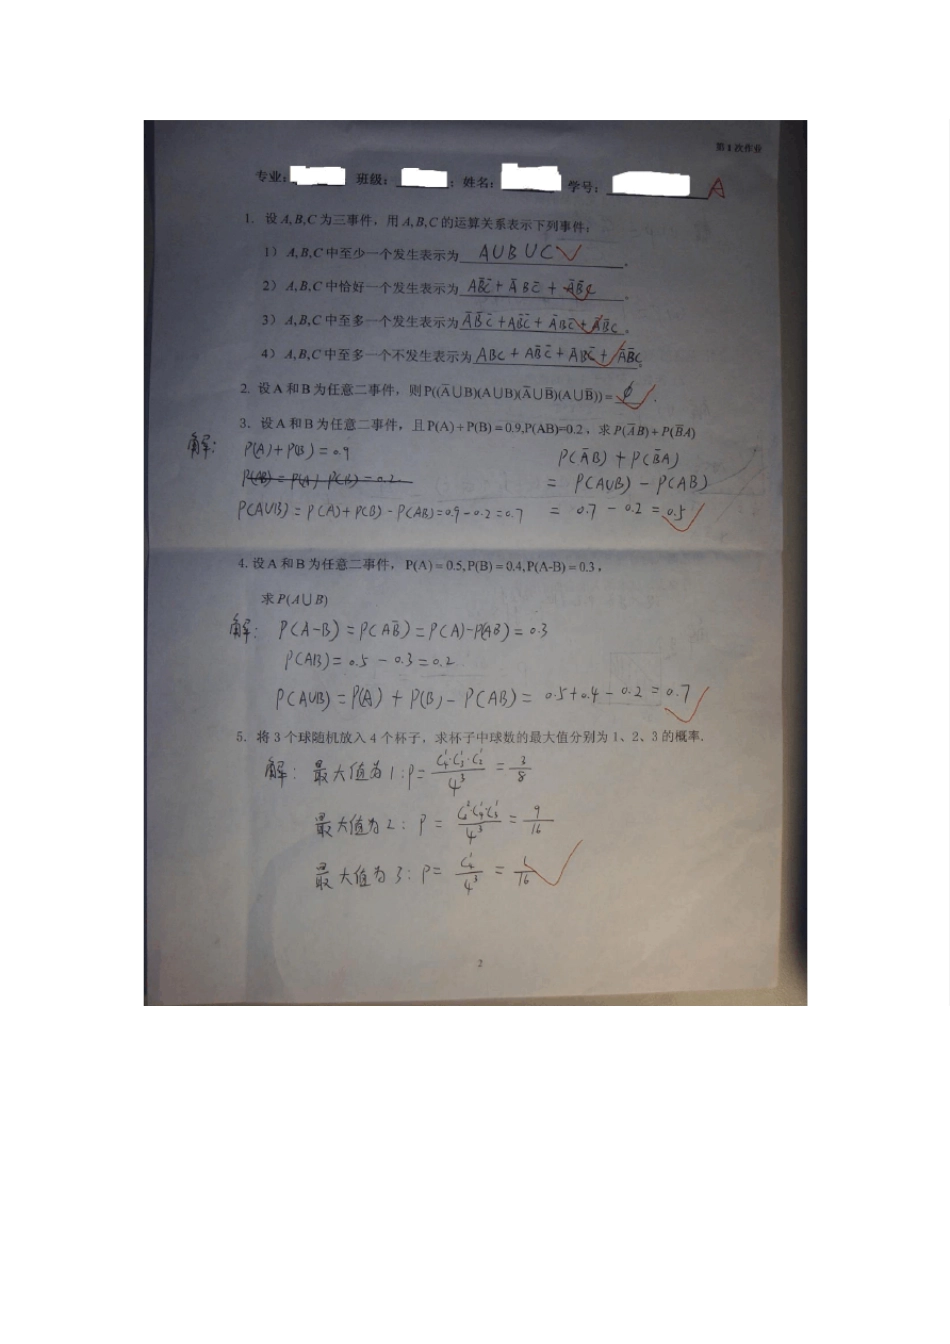 第1次作业
专业: 班级: ;姓名: 学号: A
1. 设 A,B,C 为三事件，用 A,B,C 的运算关系表示下列事件:
1）A,B,C 中至少一个发生表示为 A∪B∪C .
2）A,B,C 中恰好一个发生表示为 AB̄C̄+ĀBC̄+ĀB̄C .
3）A,B,C 中至多一个发生表示为 ĀB̄C̄+AB̄C̄+ĀBC̄+ĀB̄C .
4）A,B,C 中至多一个不发生表示为 ABC+ABC̄+AB̄C+ĀBC .
2. 设 A 和 B 为任意二事件，则 P((Ā∪B)(A∪B)(Ā∪B̄)(A∪B̄))= φ .
3、设 A 和 B 为任意二事件，且 P(A)+P(B)=0.9,P(AB)=0.2，求 P(ĀB)+P(B̄A)
解: P(A)+P(B)=0.9
P(ĀB)+P(B̄A)
= P(A∪B)-P(AB)
P(A∪B)=P(A)+P(B)-P(AB)=0.9-0.2=0.7 = 0.7-0.2=0.5
4. 设 A 和 B 为任意二事件，P(A)=0.5,P(B)=0.4,P(A-B)=0.3，
求 P(A∪B)
解: P(A-B)=P(AB̄)=P(A)-P(AB)=0.3
P(AB)=0.5-0.3=0.2
P(A∪B)=P(A)+P(B)-P(AB)=0.5+0.4-0.2=0.7
5、将 3 个球随机放入 4 个杯子，求杯子中球数的最大值分别为 1、2、3 的概率.
解: 最大值为1:P= C₄¹·C₃¹·C₂¹/4³ = 3/8
最大值为2: P= /4³ = 9/16
最大值为3: P= C₄¹/4³ = 1/16
2